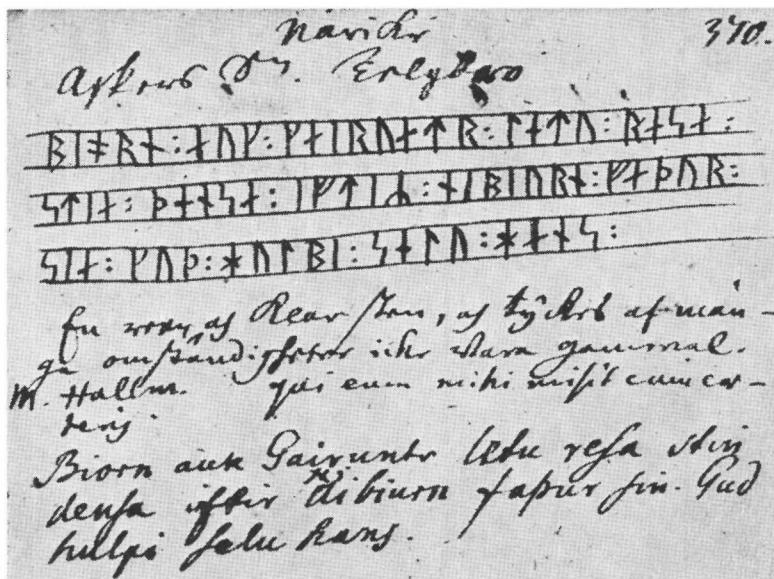 Näricke 370.
Askers Sn.
ᛒᛁᚯᚱᚾ : ᛅᚢᚴ : ᚴᛅᛁᚱᚢᚾᛏᚱ : ᛚᛅᛏᚢ : ᚱᛅᛋᛅ :
ᛋᛏᛁᚾ : ᚦᛅᚾᛋᛅ : ᛁᚠᛏᛁᛦ : ᛅᛁᛒᛁᚢᚱᚾ : ᚠᛅᚦᚢᚱ :
ᛋᛁᚾ : ᚴᚢᚦ : ᚼᚢᛚᛒᛁ : ᛋᛅᛚᚢ : ᚼᛅᚾᛋ :
En och klar sten, och tyckes af mån-
ga omständigheter icke wara gammal.
M. Hallm. qui eum mihi misit cum cæ-
teris.
Biorn auk Gairuntr latu resa stin
densa iftir Aibiurn faþur sin. Gud
hulpi salu hans.